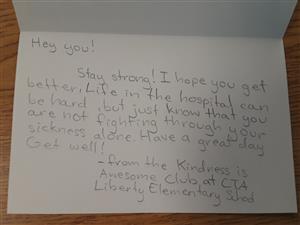 Hey you!
Stay strong! I hope you get
better. Life in the hospital can
be hard, but just know that you
are not fighting through your
sickness alone. Have a great day
Get well!
-from the Kindness is
Awesome Club at CTA
Liberty Elementary School